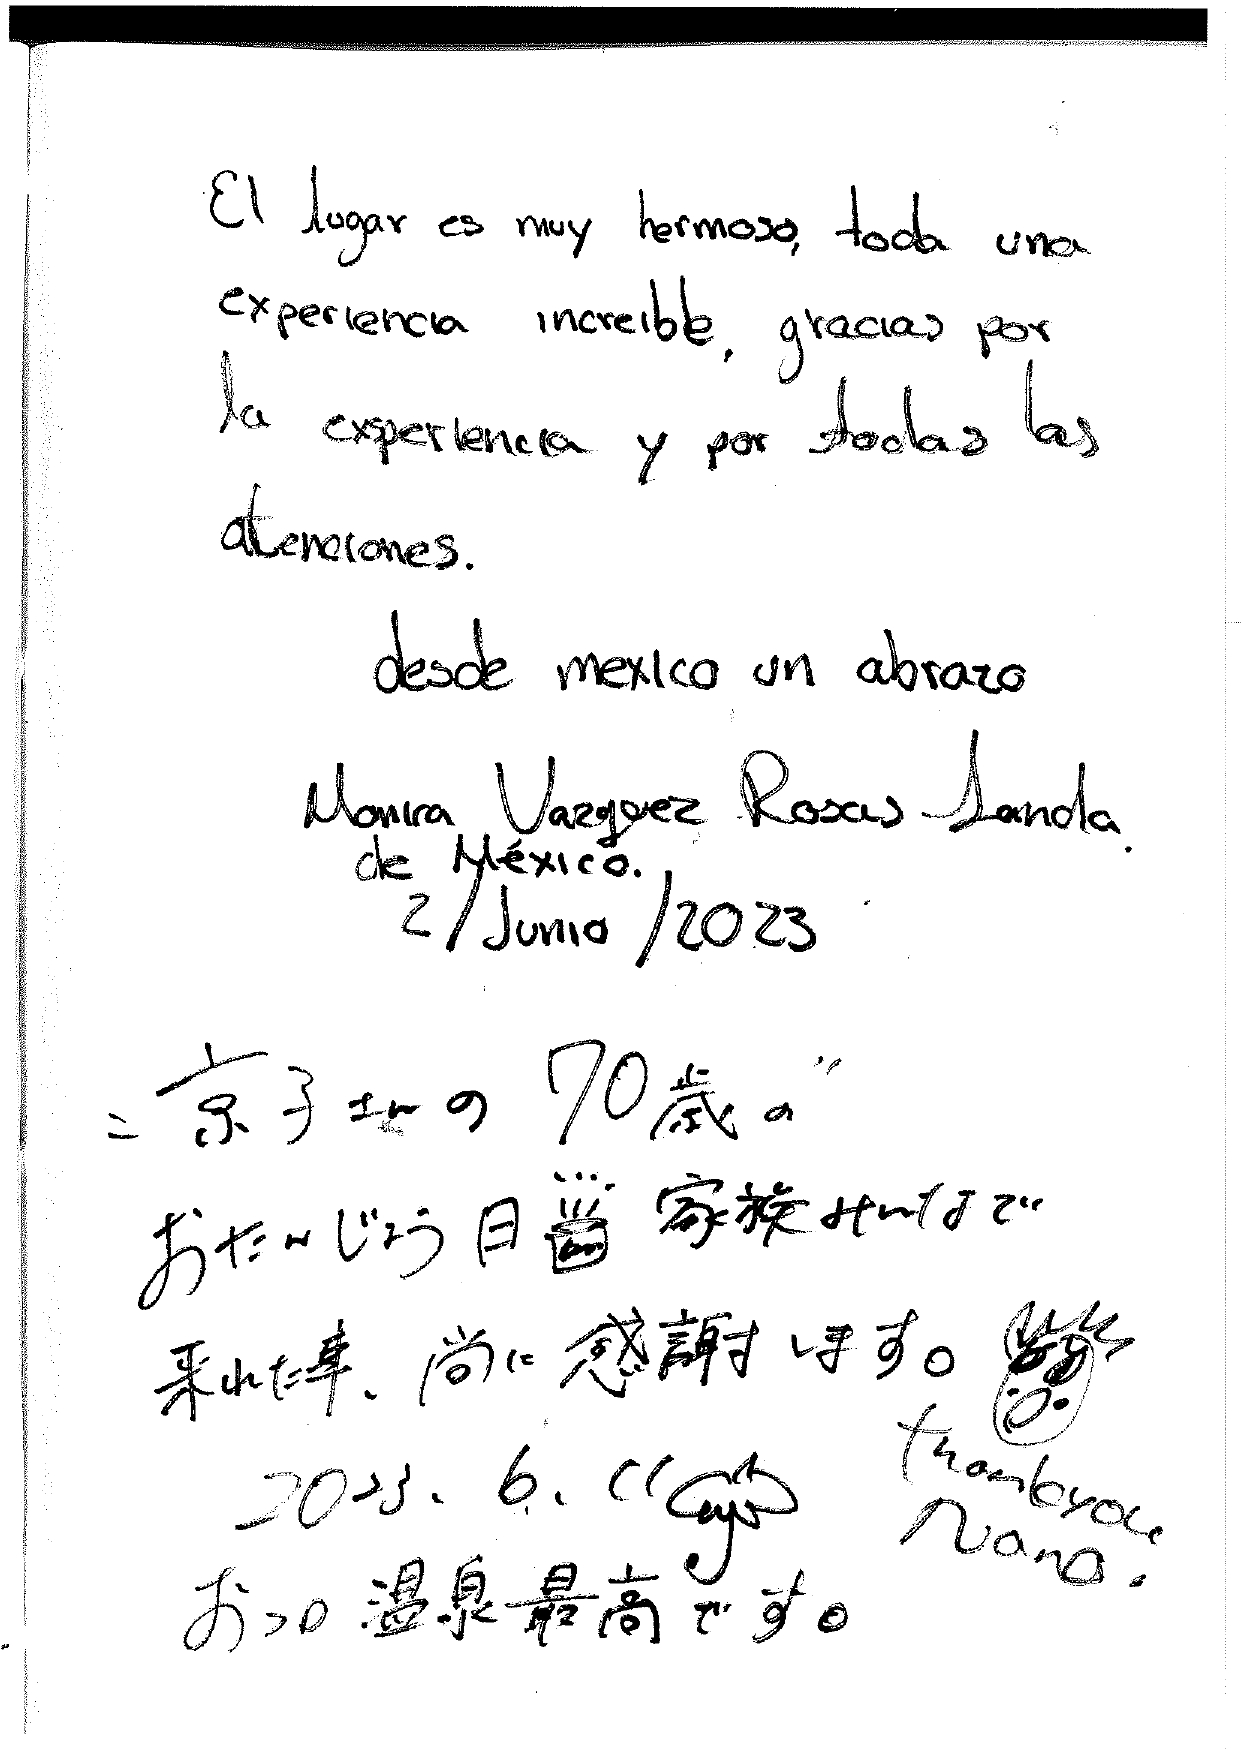 El lugar es muy hermoso, toda una
experiencia increible, gracias por
la experiencia y por todas las
atenciones.
desde mexico un abrazo
Monica Vazquez Rosas Landa.
de México.
2/Junio/2023
京子さんの70歳の
おたんじょう日 家族みんなで
来れた事、尚に感謝します。
2023.6.11
Nana.
お 温泉最高です。